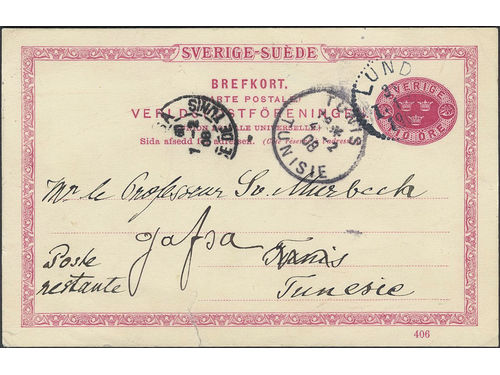 SVERIGE-SUÈDE
BREFKORT.
CARTE POSTALE
VERLDSPOSTFÖRENINGEN
UNION POSTALE UNIVERSELLE
Sida afsedd för adressen.
SVERIGE
ÖRE
LUND
TUNIS
TUNISIE
08
Mr le Professeur Sv. Murbeck
gafsa
Poste
restante
Tunis
Tunesie
406